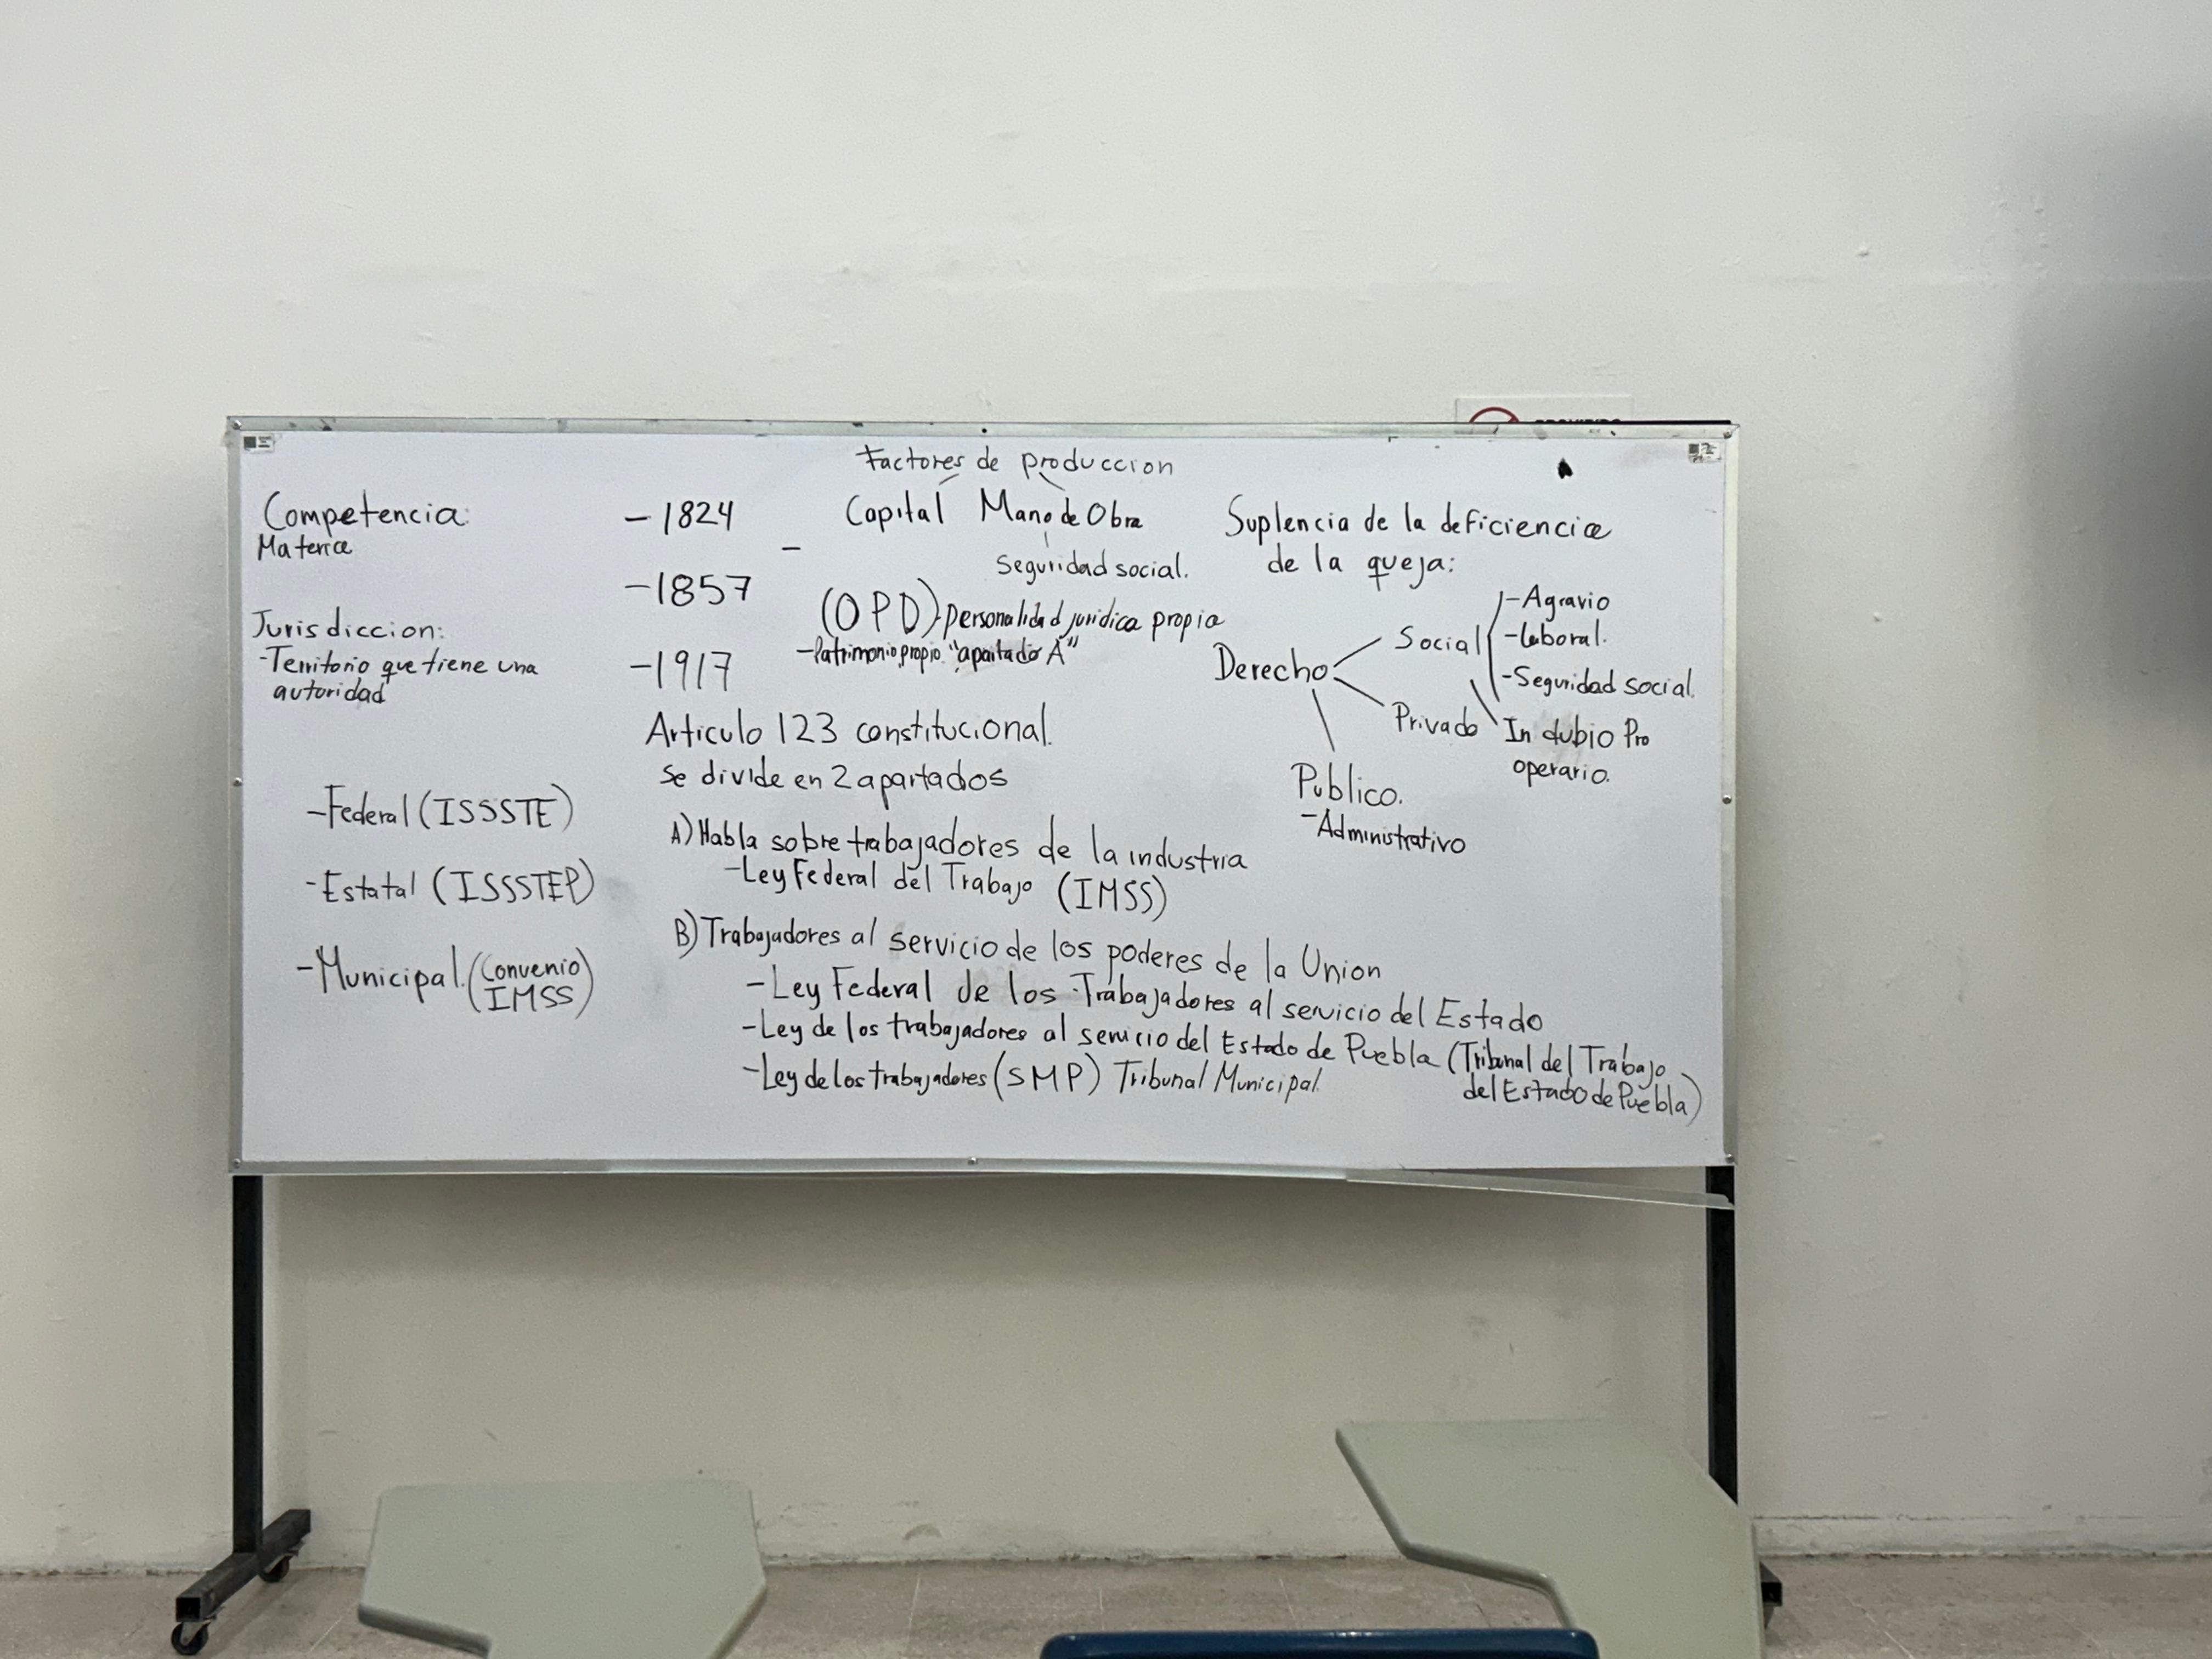 Factores de produccion
Capital Mano de Obra
Seguridad social.
Competencia:
Materia
Jurisdiccion:
-Territorio que tiene una
autoridad
-Federal (ISSSTE)
-Estatal (ISSSTEP)
-Municipal. (Convenio
IMSS)
-1824
-1857
-1917
(OPD)-personalidad juridica propia
-Patrimonio propio. "apartado A"
Articulo 123 constitucional.
se divide en 2 apartados
A) Habla sobre trabajadores de la industria
-Ley Federal del Trabajo (IMSS)
B) Trabajadores al servicio de los poderes de la Union
-Ley Federal de los Trabajadores al servicio del Estado
-Ley de los trabajadores al servicio del Estado de Puebla (Tribunal del Trabajo
del Estado de Puebla)
-Ley de los trabajadores (SMP) Tribunal Municipal.
Suplencia de la deficiencia
de la queja:
Derecho
Social
-Agravio
-laboral.
-Seguridad social.
Privado
In dubio Pro
operario.
Publico.
-Administrativo